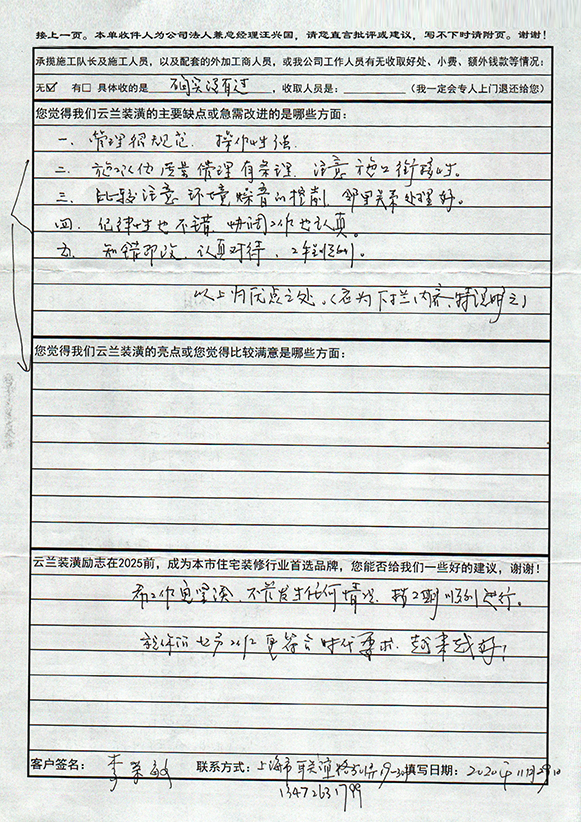 接上一页。本单收件人为公司法人兼总经理汪兴国，请您直言批评或建议，写不下时请附页。谢谢！
承揽施工队长及施工人员，以及配套的外加工商人员，或我公司工作人员有无收取好处、小费、额外钱款等情况：
无☑ 有□ 具体收的是 确实没有过 ，收取人员是： （我一定会专人上门退还给您）
您觉得我们云兰装潢的主要缺点或急需改进的是哪些方面：
一、管理很规范、操作性强.
二、施工队伍质量管理有条理、注意施工衔接性。
三、比较注意环境噪音的控制、邻里关系处理好。
四、纪律性也不错、协调工作也认真。
五、知错即改、认真对待、
以上归优点之处、(应为下栏内容、特说明之)
您觉得我们云兰装潢的亮点或您觉得比较满意是哪些方面：
云兰装潢励志在2025前，成为本市住宅装修行业首选品牌，您能否给我们一些好的建议，谢谢！
不管发生任何情况、 进行。
工作更符合时代要求、越来越好！
客户签名： 李 敏 联系方式：上海市 填写日期：2020年11月29日
13472631799